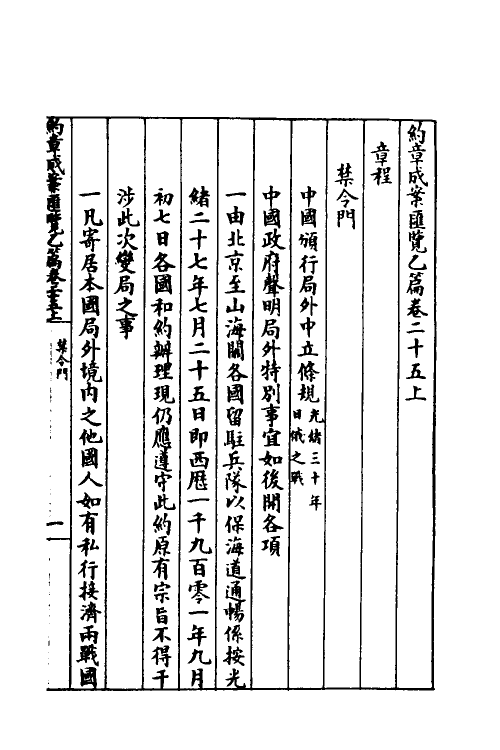 約章成案匯覽乙篇卷二十五上
章程
禁令門
中國頒行局外中立條規光緒三十年
日俄之戰
中國政府聲明局外特別事宜如後開各項
一由北京至山海關各國留駐兵隊以保海道通暢係按光
緒二十七年七月二十五日即西曆一千九百零一年九月
初七日各國和約辦理現仍應遵守此約原有宗旨不得干
涉此次變局之事
一凡寄居本國局外境內之他國人如有私行接濟兩戰國
約章成案匯覽乙篇卷二十五上
禁令門
一